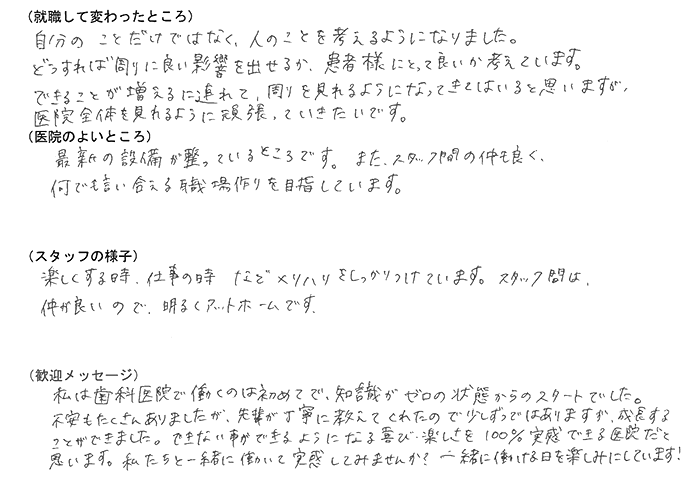 （就職して変わったところ）
自分の ことだけではなく、人のことを考えるようになりました。
どうすれば周りに良い影響を出せるか、患者様にとって良いか考えています。
できることが増えるに連れて、周りを見れるようになってきてはいると思いますが、
医院全体を見れるように頑張っていきたいです。
（医院のよいところ）
最新の設備が整っているところです。また、スタッフ間の仲も良く、
何でも言い合える職場作りを目指しています。
（スタッフの様子）
楽しくする時、仕事の時 などメリハリをしっかりつけています。スタッフ間は、
仲が良いので、明るくアットホームです。
（歓迎メッセージ）
私は歯科医院で働くのは初めてで、知識がゼロの状態からのスタートでした。
不安もたくさんありましたが、先輩が丁寧に教えてくれたので少しずつではありますが、成長する
ことができました。できない事ができるようになる喜び・楽しさを100%実感できる医院だと
思います。私たちと一緒に働いて実感してみませんか？一緒に働ける日を楽しみにしています！